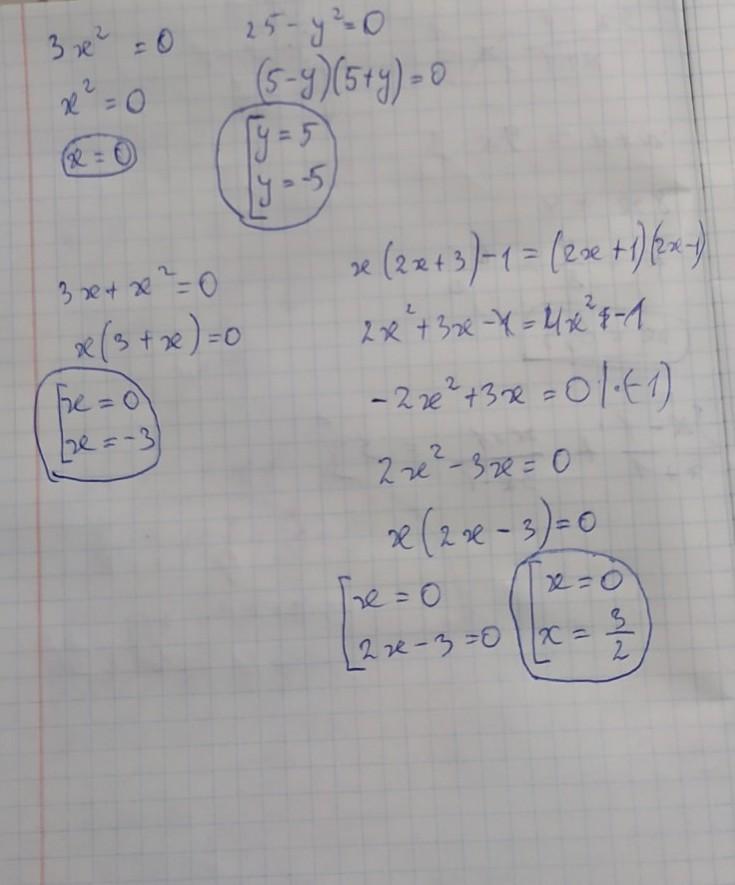 3x² = 0
x² = 0
x = 0
25 - y² = 0
(5-y)(5+y) = 0
[y = 5
y = -5
3x + x² = 0
x(3 + x) = 0
[x = 0
x = -3
x(2x+3)-1 = (2x+1)(2x-1)
2x² + 3x - 1 = 4x² - 1
-2x² + 3x = 0 | ·(-1)
2x² - 3x = 0
x(2x - 3) = 0
[x = 0
2x - 3 = 0
[x = 0
x = 3/2